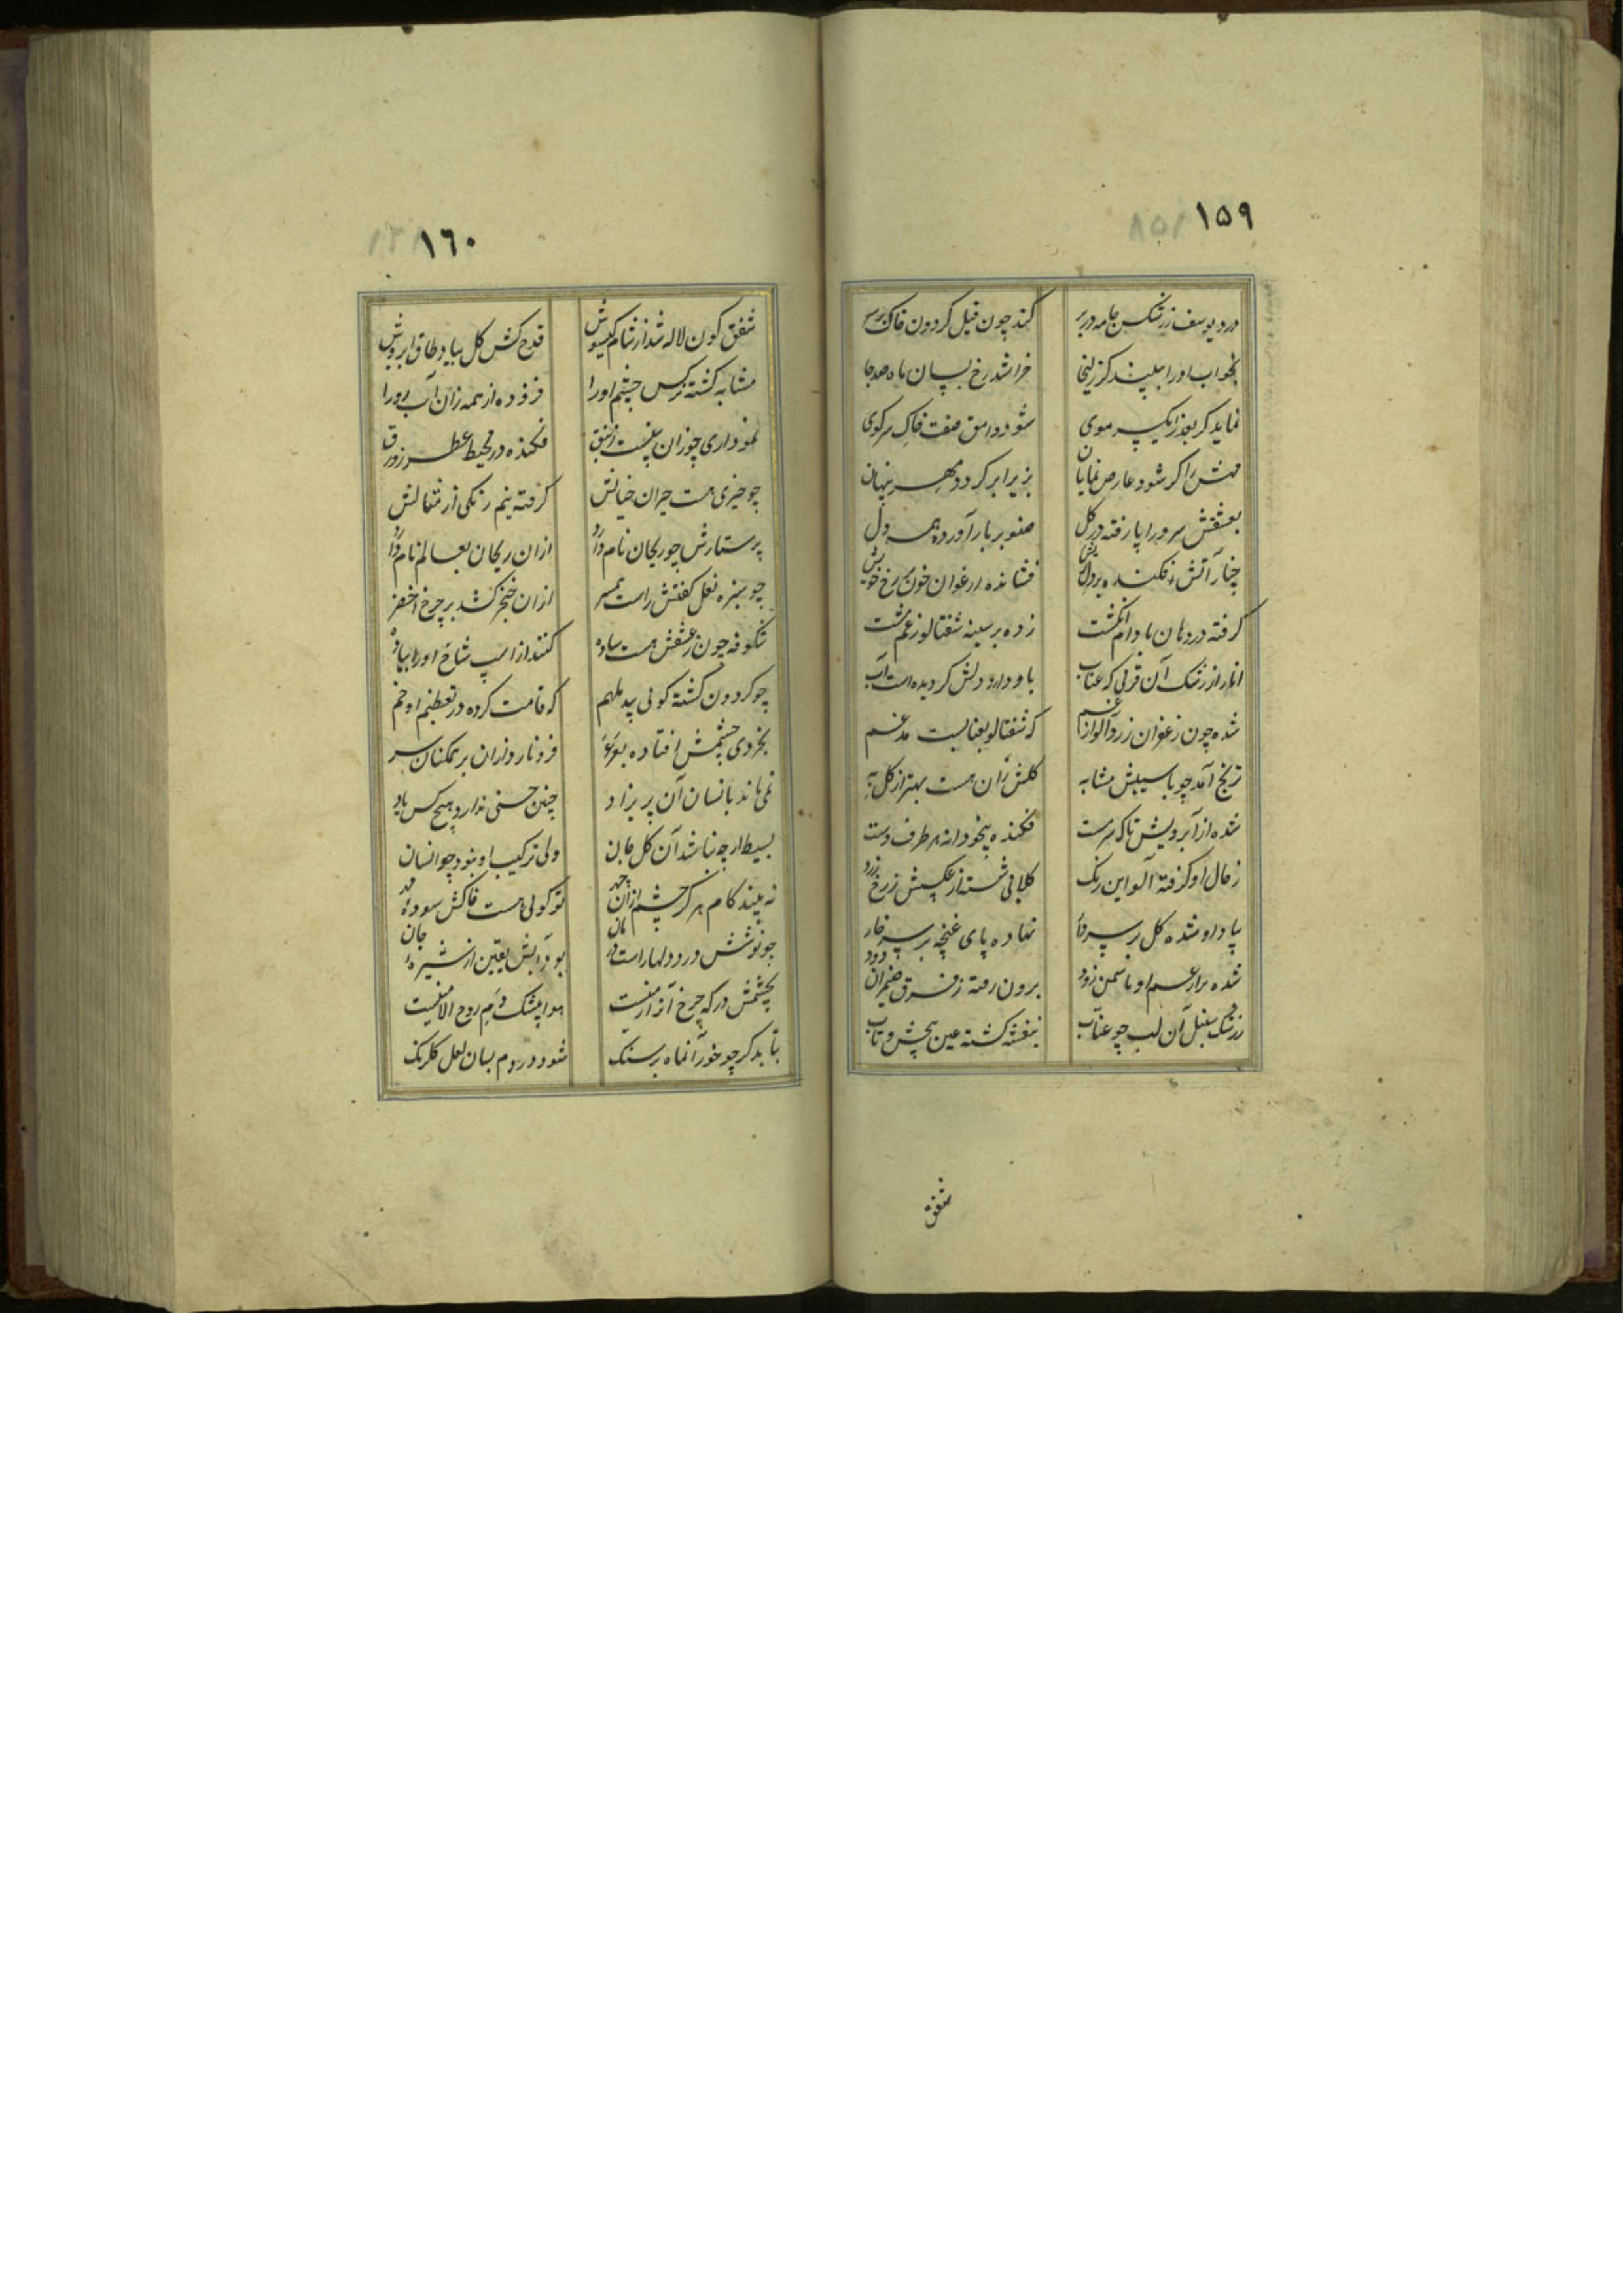 ۱۵۹
درد یوسف ز رشکش جامه در بر
کند چون فیل کردون خاک بر سر
بخواب او را ببیند کر زلیخا
خراشد رخ بسان ماه صد جا
نماید کر بعذرا یکسر موی
شود وامق صفت خاک سر کوی
مهش را کر شود عارض نمایان
بزیر ابر کردد مهر پنهان
بعشقش سرو را پا رفته در کل
صنوبر بار آورده همه دل
چنار آتش فکنده بر دل خویش
فشانده ارغوان خون بر رخ خویش
کرفته در دهان بادام انکشت
زده بر سینه شفتالو ز غم مشت
انار از رشک آن
باو دارو دلش کردیده است آب
شده چون زعفران زردآلو از غم
که شفتالو بعنابیست مدغم
ترنج آمد چو با سیبش مشابه
کلش زان هست بهتر از کل به
شده از آبرویش تاک سرمست
فکنده بیخودانه هر طرف دست
ز خال او کرفته آلو این رنک
کلابی شسته از عکسش ز رخ
بیاد او شده کل بر سر دار
نهاده پای غنچه بر سر خار
شده برار غم او یاسمن زود
برون رفته ز فرق ضیمران دود
ز رشک سنبل آن لب چو عناب
بنفشه کشته عین پیچش و تاب
شفق
۱٦۰
شفق کون لاله شد از شام کیسوش
قدح کش کل بیاد طاق ابروش
مشابه کشته نرکس چشم او را
فزوده از همه زان آب رو را
نموداری چو زان بینیست زنبق
فکنده در محیط عطر زورق
چو خیری هست حیران خیالش
کرفته نیم رنکی از مثالش
پرستارش چو ریحان نام دارد
ازان ریحان بعالم نام دارد
چو سبزه نعل کفشش راست همسر
ازان خنجر کشد بر چرخ اخضر
شکوفه چون ز عشقش هست ساده
کنند از اسپ شاخ او را پیاده
چو کردون کشته کوئی بید ملهم
که قامت کرده در تعظیم او خم
بخردی چشمش افتاده بعرعر
فرو نارد ازان بر همکنان سر
نمی‌ماند بانسان آن پریزاد
چنین حسنی ندارد هیچکس یاد
بسیط ار چه نباشد آن کل جان
ولی ترکیب او نبود چو انسان
نه بیند کام هرکز چشم ازان
تو کوئی هست خاکش سوده
چو نوشش درد دلها راست
بود آبش یقین از شیره جان
بچشمش درکه چرخ
هوا بیشک دم روح الامینست
بتابد کر چو خور آنماه بر سنک
شود در دم بسان لعل کلرنک